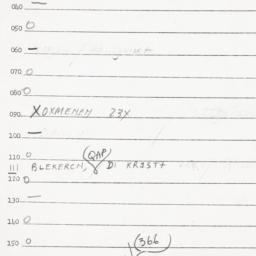 040 —
050 0
060 —
070 0
080 0
090 XOXMENEM 23X
100 —
110 0 (QAP)
111 BLEKERCH, DI KRIST+
120 0
130 —
140 0
(366)
150 0